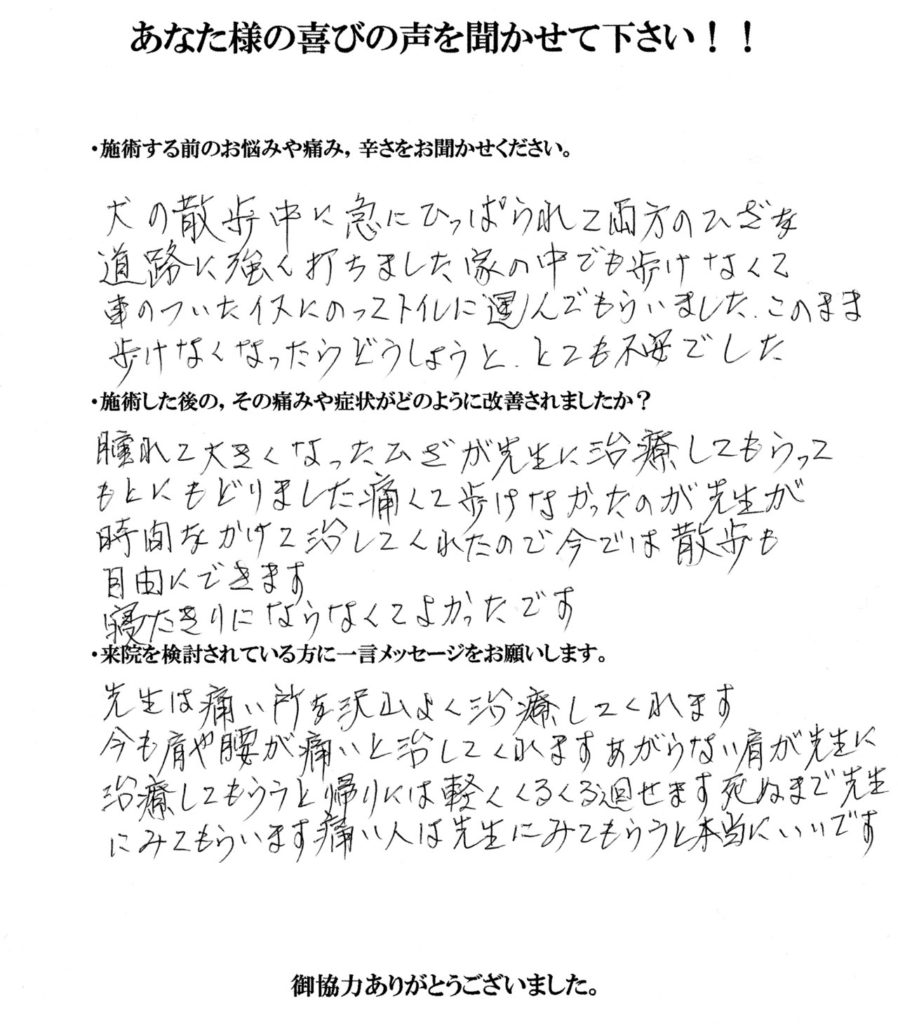 あなた様の喜びの声を聞かせて下さい！！
・施術する前のお悩みや痛み，辛さをお聞かせください。
犬の散歩中に急にひっぱられて両方のひざを
道路に強く打ちました家の中でも歩けなくて
車のついたイスにのってトイレに運んでもらいました．このまま
歩けなくなったらどうしようと．とても不安でした
・施術した後の，その痛みや症状がどのように改善されましたか？
腫れて大きくなったひざが先生に治療してもらって
もとにもどりました痛くて歩けなかったのが先生が
時間をかけて治してくれたので今では散歩も
自由にできます
寝たきりにならなくてよかったです
・来院を検討されている方に一言メッセージをお願いします。
先生は痛い所を沢山よく治療してくれます
今も肩や腰が痛いと治してくれますあがらない肩が先生に
治療してもらうと帰りには軽くくるくる廻せます死ぬまで先生
にみてもらいます痛い人は先生にみてもらうと本当にいいです
御協力ありがとうございました。